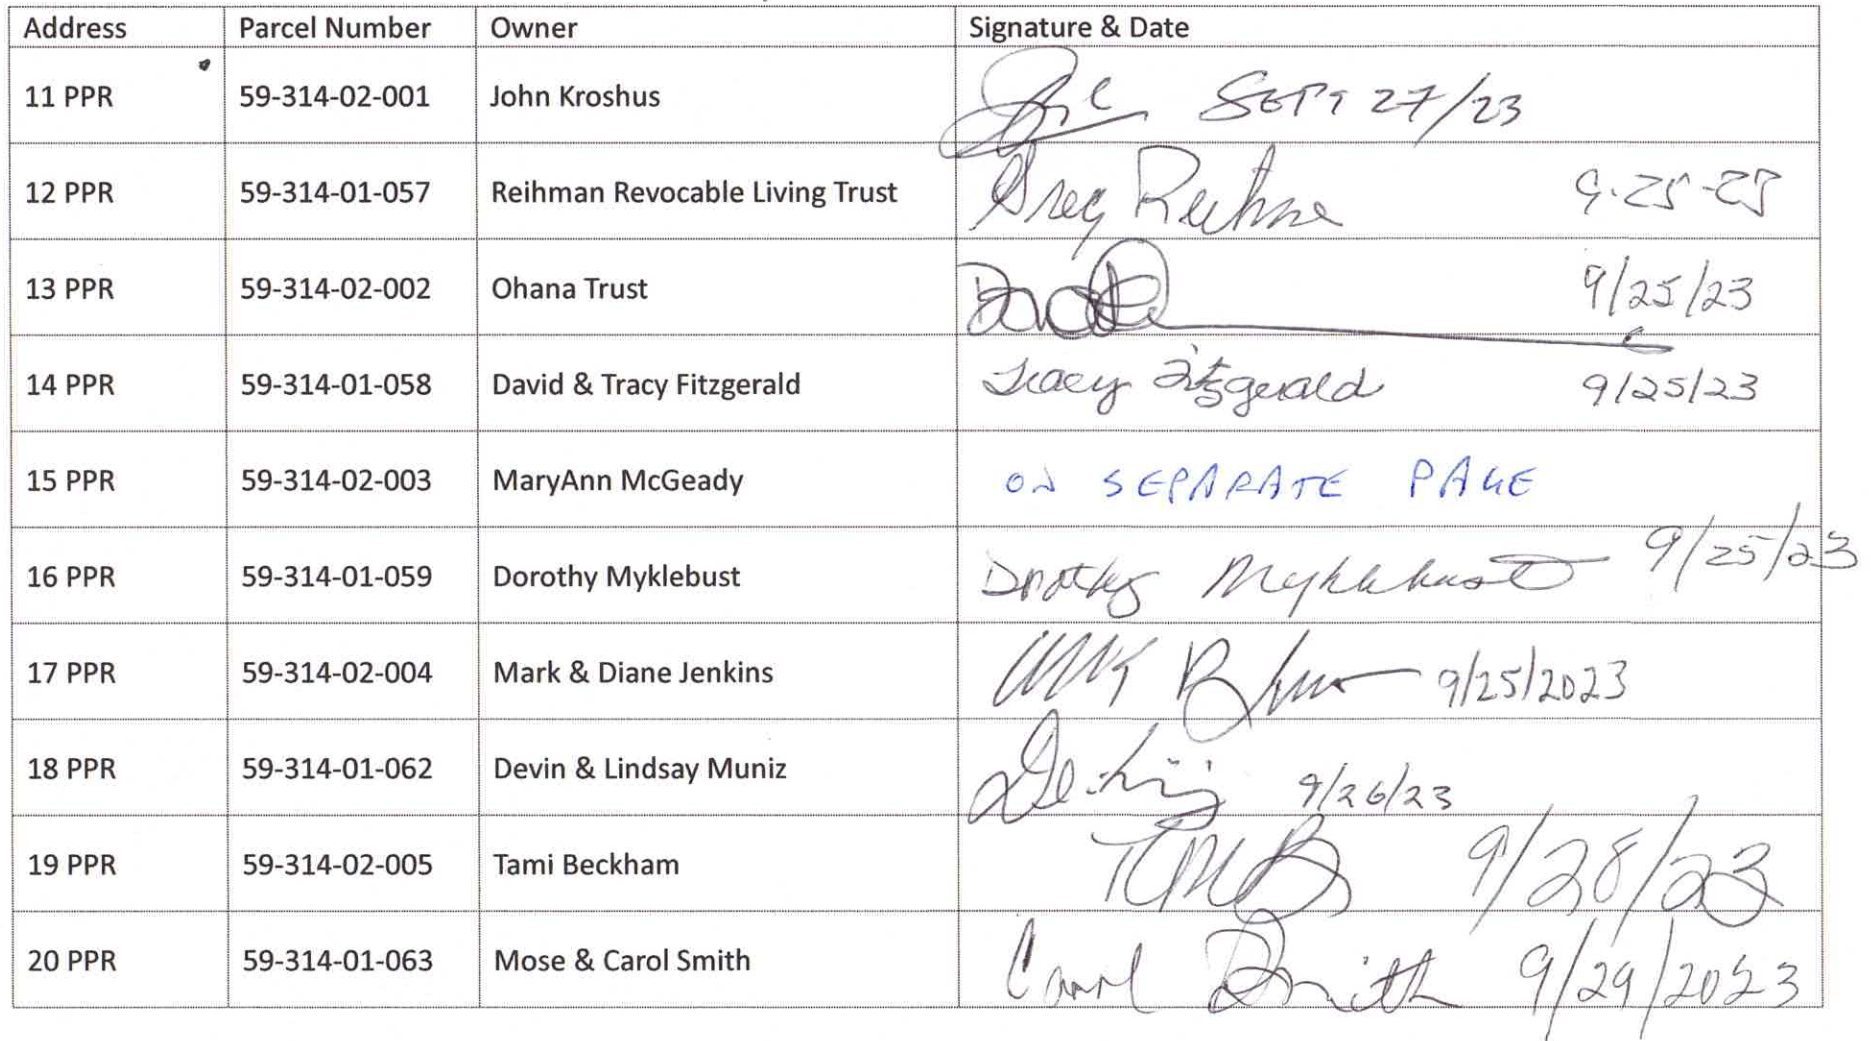 Address Parcel Number Owner Signature & Date
11 PPR 59-314-02-001 John Kroshus SEPT 27/23
12 PPR 59-314-01-057 Reihman Revocable Living Trust Greg Reihman 9-25-23
13 PPR 59-314-02-002 Ohana Trust 9/25/23
14 PPR 59-314-01-058 David & Tracy Fitzgerald Tracy Fitzgerald 9/25/23
15 PPR 59-314-02-003 MaryAnn McGeady ON SEPARATE PAGE
16 PPR 59-314-01-059 Dorothy Myklebust Dorothy Myklebust 9/25/23
17 PPR 59-314-02-004 Mark & Diane Jenkins 9/25/2023
18 PPR 59-314-01-062 Devin & Lindsay Muniz 9/26/23
19 PPR 59-314-02-005 Tami Beckham 9/28/23
20 PPR 59-314-01-063 Mose & Carol Smith Carol Smith 9/29/2023